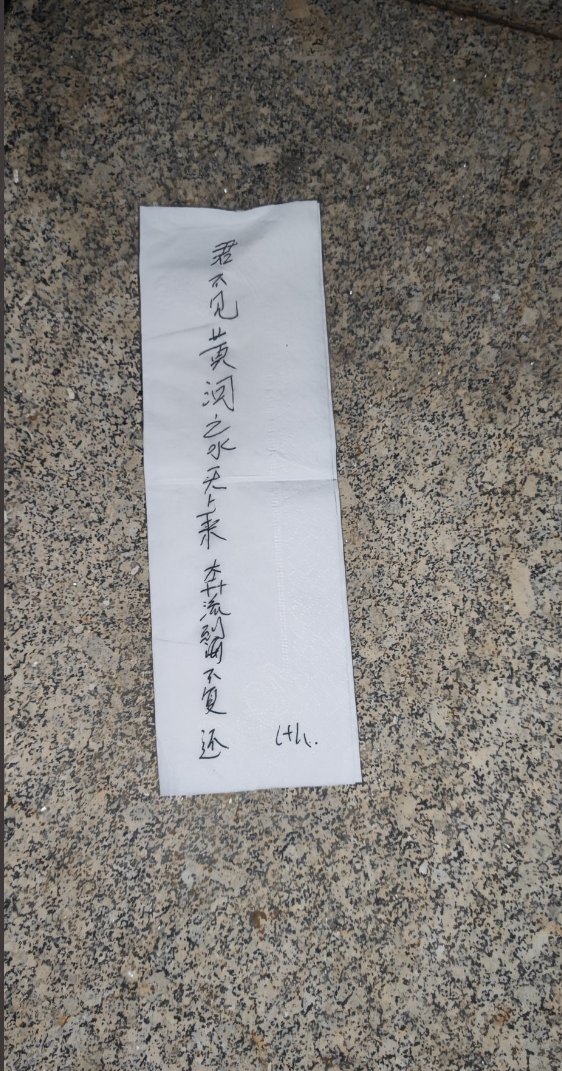 君不见黄河之水天上来 奔流到海不复还